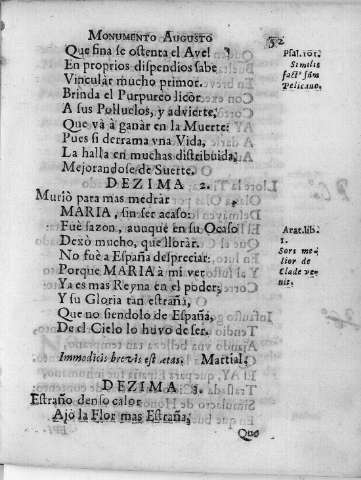 MONUMENTO AUGUSTO
52
Que fina se ostenta el Ave!
En proprios dispendios sabe
Vincular mucho primor.
Brinda el Purpureo licòr
A sus Polluelos, y advierte,
Que và à ganàr en la Muerte:
Pues si derrama vna Vida,
La halla en muchas distribuida,
Mejorandose de Suerte.
Psal. 101.
Similis
fact' sũm
Pelicano.
DEZIMA 2.
Muriò para mas medrar
MARIA, sin ser acaso:
Fuè sazon, aunque en su Ocaso
Dexò mucho, que lloràr.
No fuè a España despreciar:
Porque MARIA à mi ver
Ya es mas Reyna en el poder;
Y su Gloria tan estraña,
Que no siendolo de España,
De el Cielo lo huvo de ser.
Arat. lib.
1.
Sors me-
lior de
Clade ve-
nit.
Immodicis brevis est ætas. Martial.
DEZIMA 3.
Estraño denso calor
Ajò la Flor mas Estraña;
Que